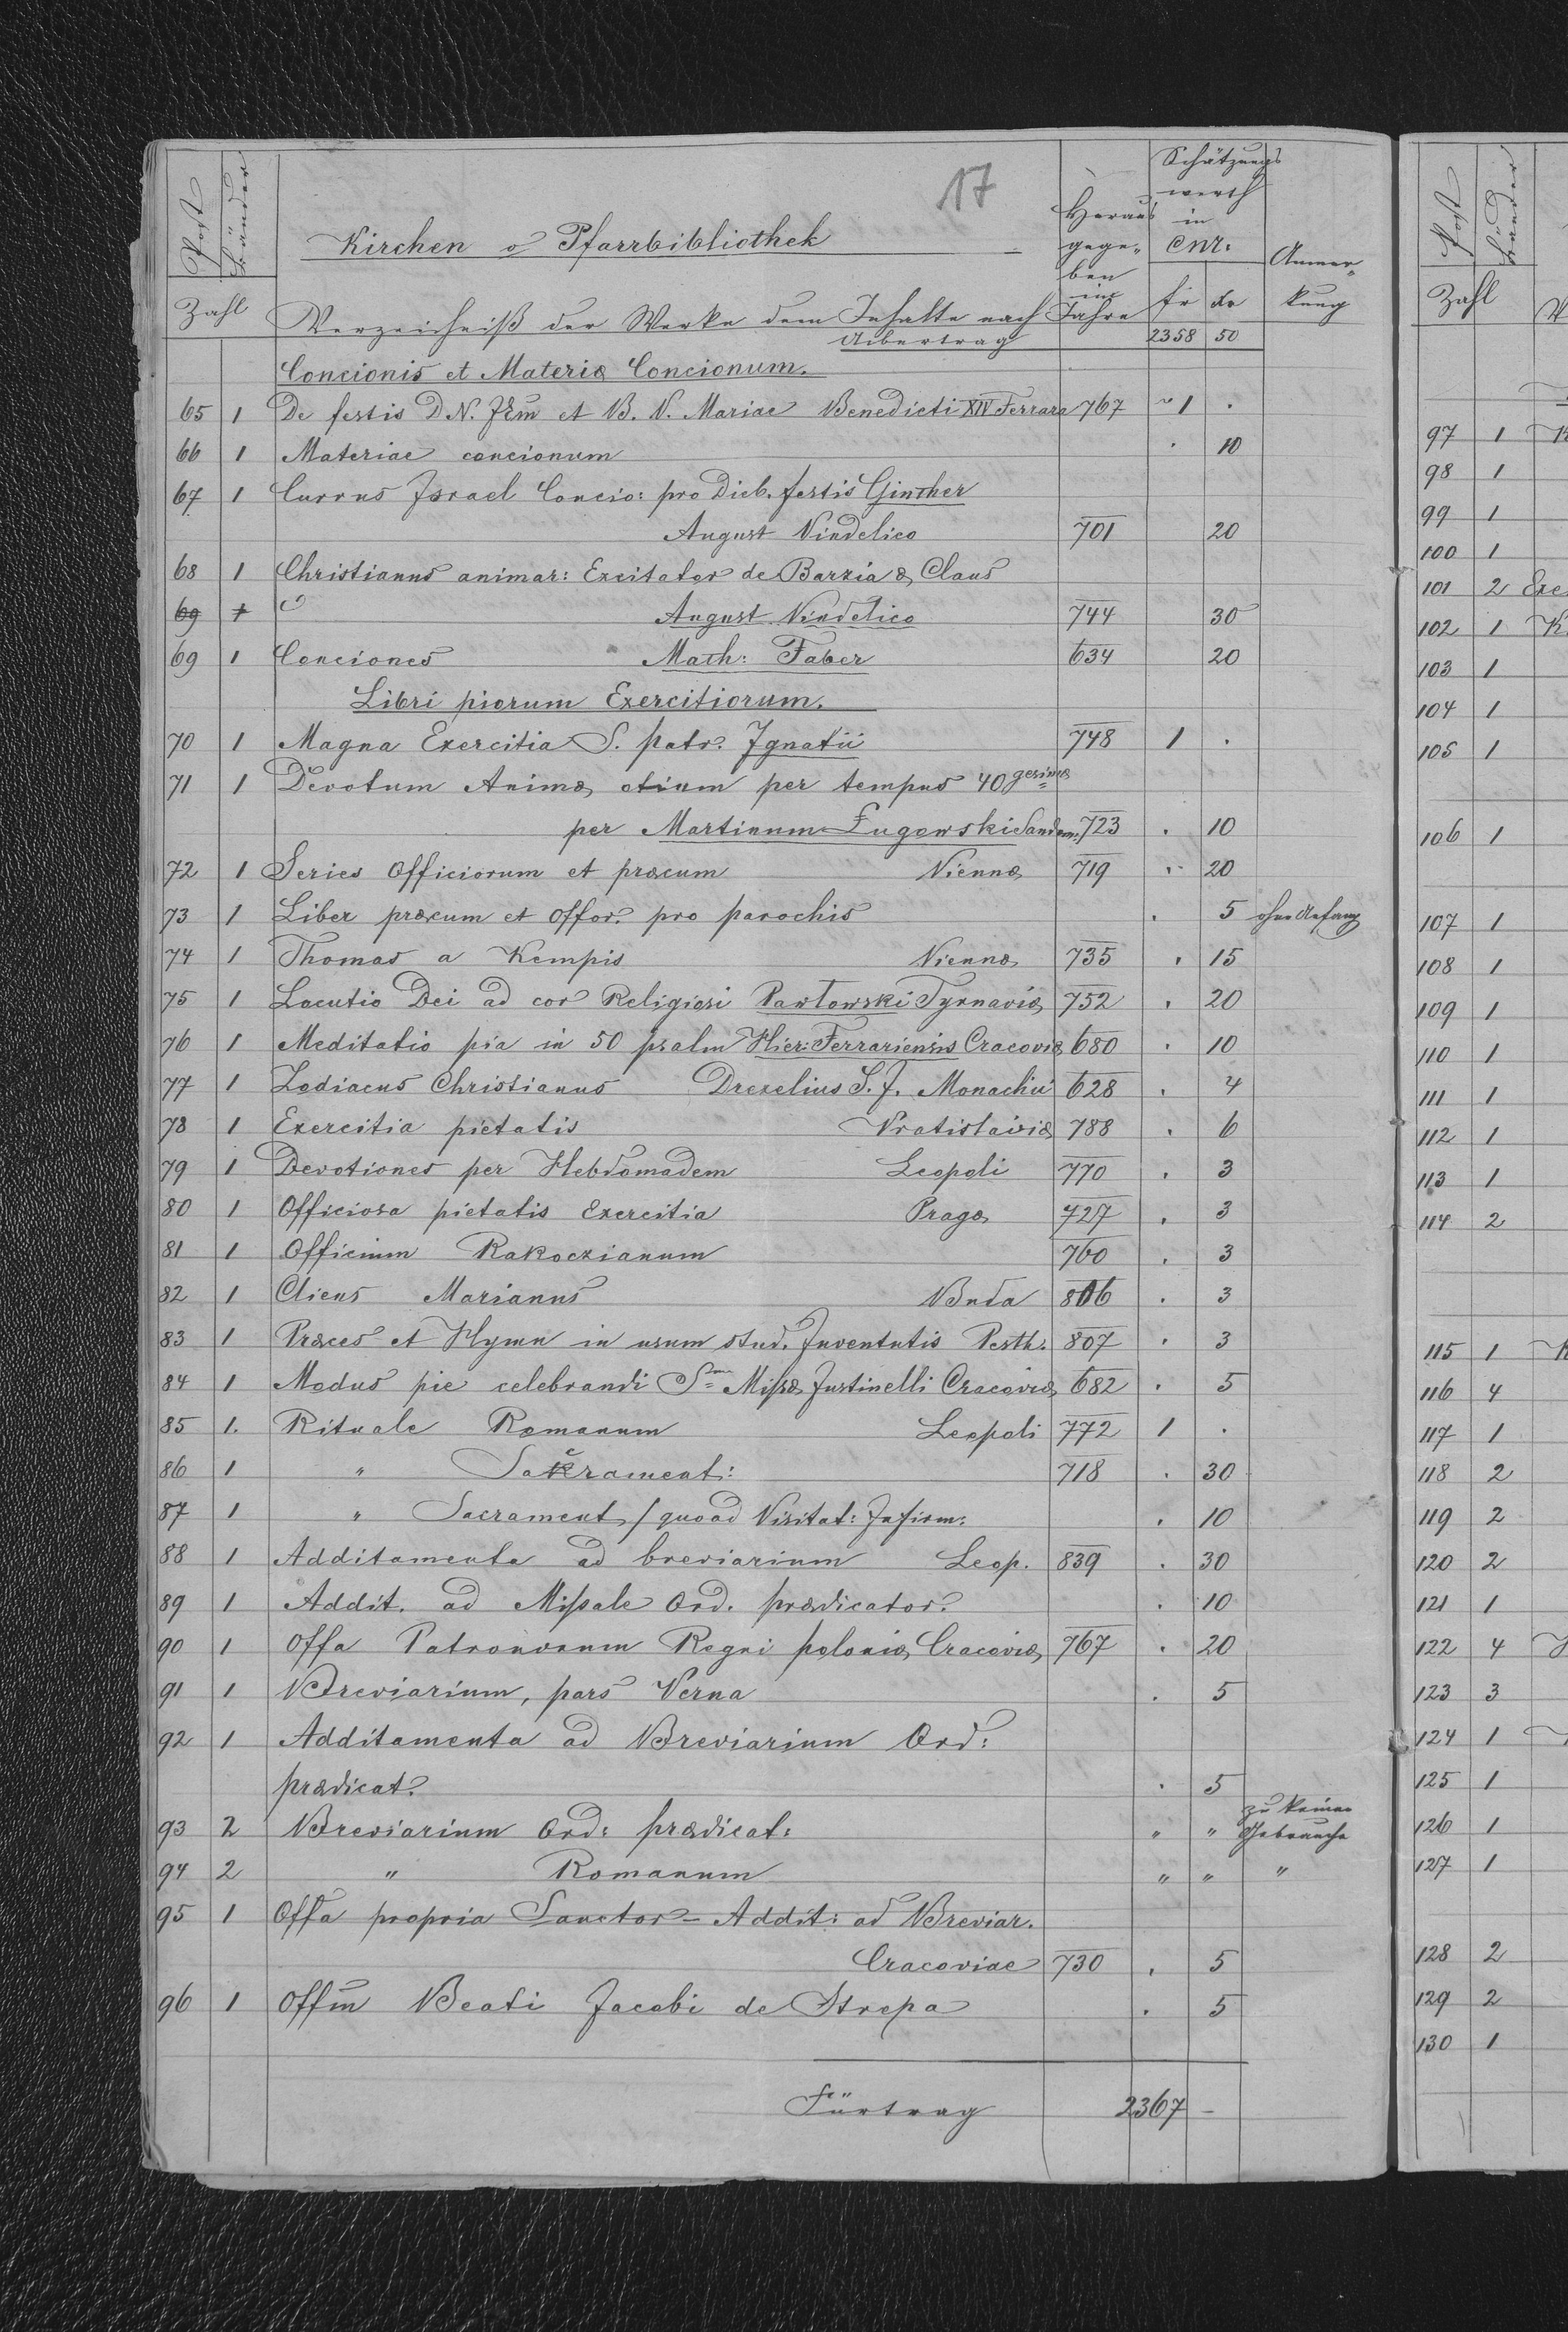 17
Post Bänder Zahl
Kirchen o Pfarrbibliothek
Verzeichniß der Werke dem Inhalte nach
Herausgege„ben im Jahre
Schätzungswerth in CM:
fr Xr
Anmer„kung
Uibertrag 2358 50
Concionis et Materiæ Concionum.
65 1 De festis D.N. et B. V. Mariae Benedicti XIV Ferrara 767 1 .
66 1 Materiae concionum . 10
67 1 Currus Israel Concio: pro Dieb. festis Ginther
August Vindelico 701 20
68 1 Christianus animar: Excitator de Barzia & Claus
69 1 August Vindelico 744 30
69 1 Conciones Math: Faber 634 20
Libri piorum Exercitiorum.
70 1 Magna Exercitia S. patr. Ignatii 748 1 .
71 1 Devotum Animæ otium per tempus 40gesimæ
per Martinum Ługowski Sandom: 723 . 10
72 1 Series Officiorum et præcum Viennæ 719 . 20
73 1 Liber præcum et offor. pro parochis . 5 ohne Anfang
74 1 Thomas a Kempis Viennæ 735 . 15
75 1 Locutio Dei ad cor Religiosi Pawłowski Tyrnaviæ 752 . 20
76 1 Meditatio pia in 50 psalm Hier: Ferrariensis Cracoviæ 680 . 10
77 1 Zodiacus Christianus Drexelius S. J. Monachii 628 . 4
78 1 Exercitia pietatis Vratislaviæ 788 . 6
79 1 Devotiones per Hebdomadem Leopoli 770 . 3
80 1 Officiosa pietatis Exercitia Pragæ 727 . 3
81 1 Officium Rakoczianum 760 . 3
82 1 Cliens Marianus Buda 806 . 3
83 1 Præces et Hymn in usum stud. Juventutis Pesth. 807 . 3
84 1 Modus pie celebrandi Smæ Missæ Justinelli Cracoviæ 682 . 5
85 1. Rituale Romanum Leopoli 772 1 .
86 1 " Sacrament: 718 . 30
87 1 " Sacrament / quoad Visitat: Infirm: . 10
88 1 Additamenta ad breviarium Leop. 839 . 30
89 1 Addit. ad Missale Ord. prædicator. . 10
90 1 Offa Patronorum Regni poloniæ Cracoviæ 767 . 20
91 1 Breviarium, pars Verna . 5
92 1 Additamenta ad Breviarium Ord:
prædicat. . 5
93 2 Breviarium Ord: prædicat: " " zu keinem Gebrauche
94 2 " Romanum " " "
95 1 Offa propria Sanctor - Addit: ad Breviar.
Cracoviae 730 . 5
96 1 Offm Beati Jacobi de Strepa . 5
Fürtrag 2367 -
Post Bänder Zahl
97 1
98 1
99 1
100 1
101 2 Exe
102 1 K
103 1
104 1
105 1
106 1
107 1
108 1
109 1
110 1
111 1
112 1
113 1
114 2
115 1 K
116 4
117 1
118 2
119 2
120 2
121 1
122 4
123 3
124 1
125 1
126 1
127 1
128 2
129 2
130 1